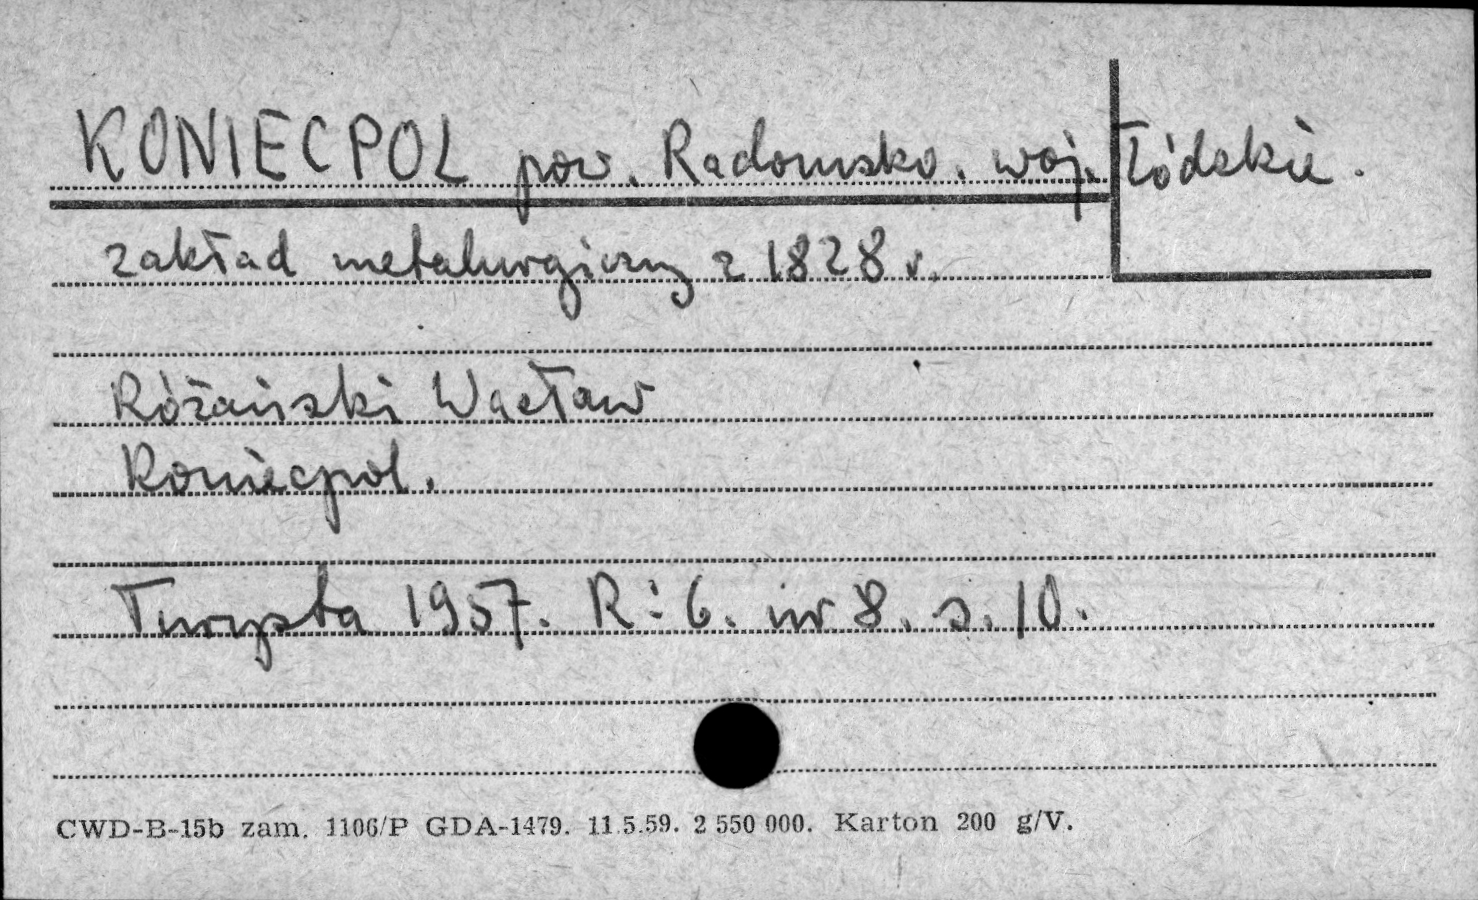 KONIECPOL pow. Radomsko. woj. Łódzkie.
zakład metalurgiczny z 1828 r.
Różański Wacław
Koniecpol.
Turysta 1957. R: 6. nr 8. s. 10.
CWD-B-15b zam. 1106/P GDA-1479. 11.5.59. 2 550 000. Karton 200 g/V.